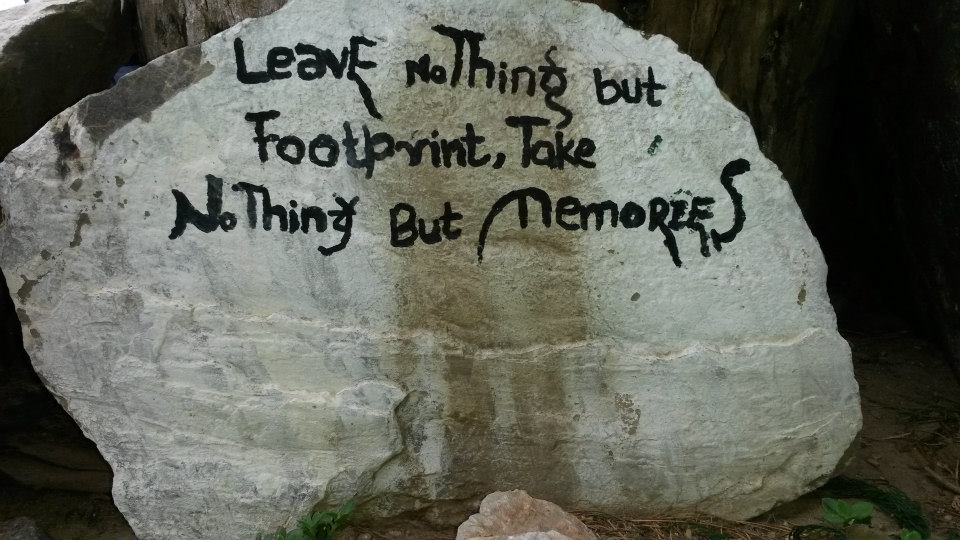 Leave NoThing but
Footprint, Take
NoThing But MemoRIES